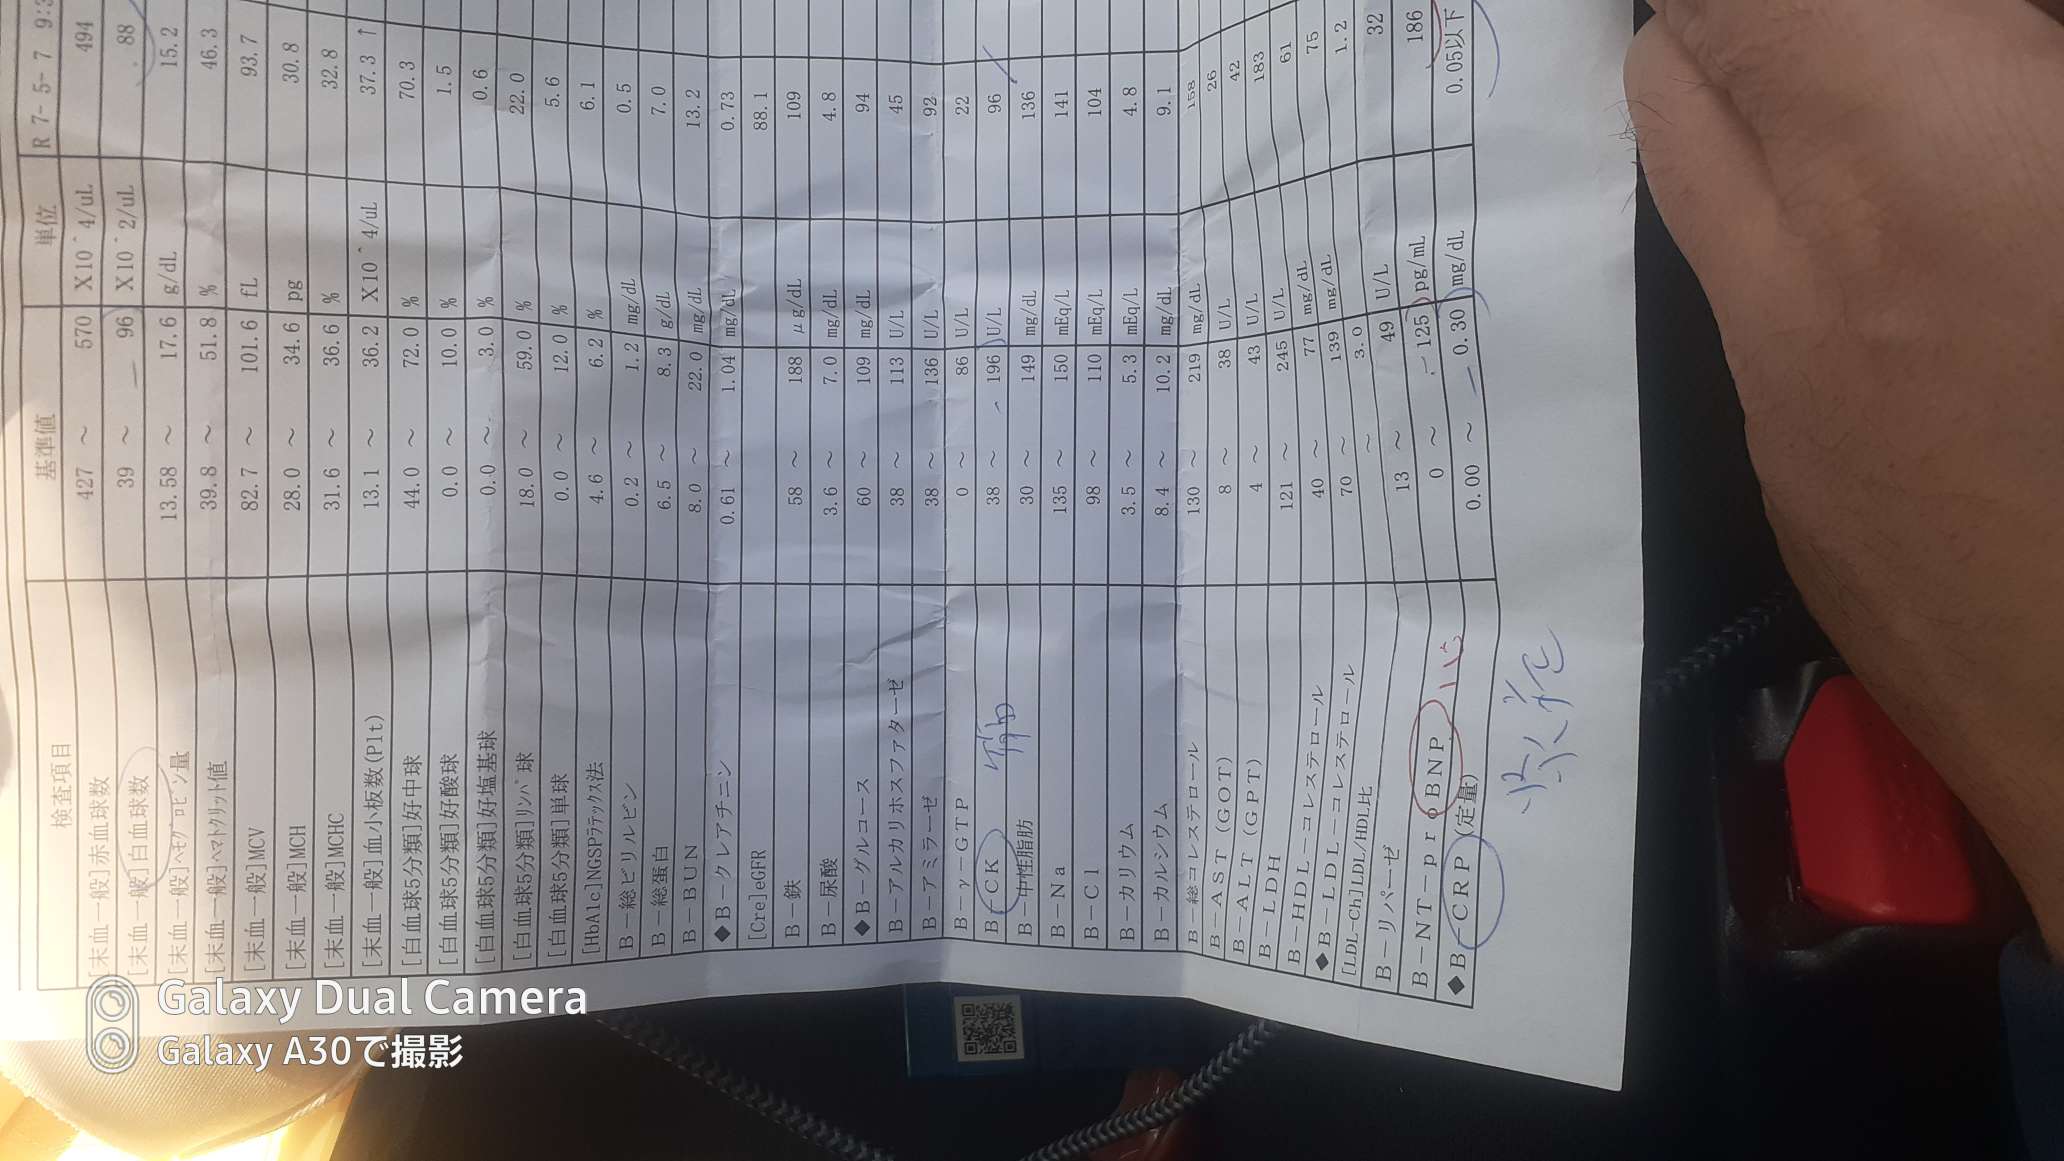 検査項目 基準値 単位 R 7- 5- 7 9:3
[末血一般]赤血球数 427 ～ 570 X10^4/uL 494
[末血一般]白血球数 39 ～ 96 X10^2/uL 88
[末血一般]ﾍﾓｸﾞﾛﾋﾞﾝ量 13.58 ～ 17.6 g/dL 15.2
[末血一般]ﾍﾏﾄｸﾘｯﾄ値 39.8 ～ 51.8 % 46.3
[末血一般]MCV 82.7 ～ 101.6 fL 93.7
[末血一般]MCH 28.0 ～ 34.6 pg 30.8
[末血一般]MCHC 31.6 ～ 36.6 % 32.8
[末血一般]血小板数(Plt) 13.1 ～ 36.2 X10^4/uL 37.3 ↑
[白血球5分類]好中球 44.0 ～ 72.0 % 70.3
[白血球5分類]好酸球 0.0 ～ 10.0 % 1.5
[白血球5分類]好塩基球 0.0 ～ 3.0 % 0.6
[白血球5分類]ﾘﾝﾊﾟ球 18.0 ～ 59.0 % 22.0
[白血球5分類]単球 0.0 ～ 12.0 % 5.6
[HbA1c]NGSPﾗﾃｯｸｽ法 4.6 ～ 6.2 % 6.1
B－総ビリルビン 0.2 ～ 1.2 mg/dL 0.5
B－総蛋白 6.5 ～ 8.3 g/dL 7.0
B－BUN 8.0 ～ 22.0 mg/dL 13.2
◆B－クレアチニン 0.61 ～ 1.04 mg/dL 0.73
[Cre]eGFR 88.1
B－鉄 58 ～ 188 μg/dL 109
B－尿酸 3.6 ～ 7.0 mg/dL 4.8
◆B－グルコース 60 ～ 109 mg/dL 94
B－アルカリホスファターゼ 38 ～ 113 U/L 45
B－アミラーゼ 38 ～ 136 U/L 92
B－γ－GTP 0 ～ 86 U/L 22
B－CK 38 ～ 196 U/L 96
B－中性脂肪 30 ～ 149 mg/dL 136
B－Na 135 ～ 150 mEq/L 141
B－Cl 98 ～ 110 mEq/L 104
B－カリウム 3.5 ～ 5.3 mEq/L 4.8
B－カルシウム 8.4 ～ 10.2 mg/dL 9.1
B－総コレステロール 130 ～ 219 mg/dL 158
B－AST (GOT) 8 ～ 38 U/L 26
B－ALT (GPT) 4 ～ 43 U/L 42
B－LDH 121 ～ 245 U/L 183
B－HDL－コレステロール 40 ～ 77 mg/dL 61
◆B－LDL－コレステロール 70 ～ 139 mg/dL 75
[LDL-Ch]LDL/HDL比 ～ 3.0 1.2
B－リパーゼ 13 ～ 49 U/L 32
B－NT－proBNP 0 ～ 125 pg/mL 186
◆B－CRP(定量) 0.00 ～ 0.30 mg/dL 0.05以下
炎症
Galaxy Dual Camera
Galaxy A30で撮影